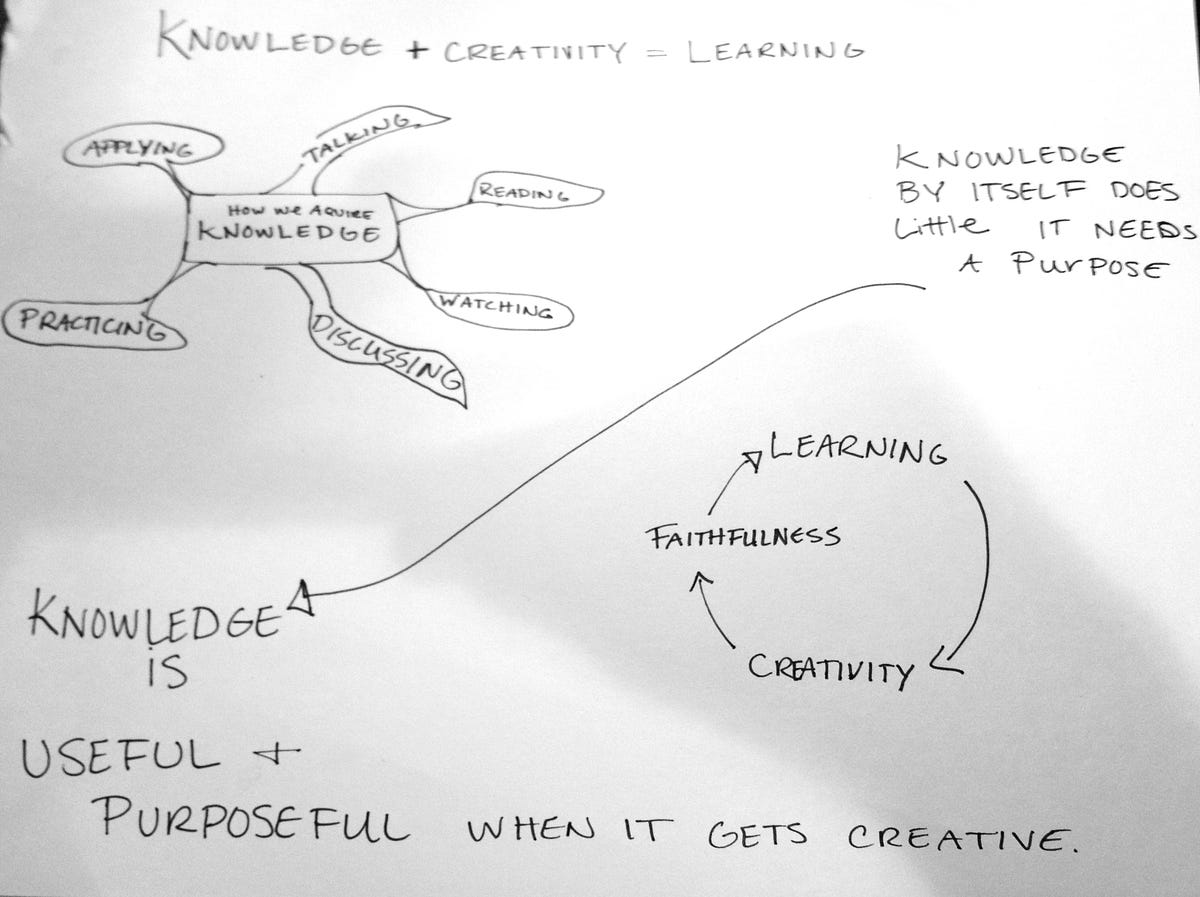 KNOWLEDGE + CREATIVITY = LEARNING
APPLYING
TALKING
READING
HOW WE AQUIRE
KNOWLEDGE
PRACTICING
WATCHING
DISCUSSING
KNOWLEDGE
BY ITSELF DOES
Little IT NEEDS
A PURPOSE
LEARNING
FAITHFULNESS
CREATIVITY
KNOWLEDGE
iS
USEFUL +
PURPOSEFUL WHEN IT GETS CREATIVE.